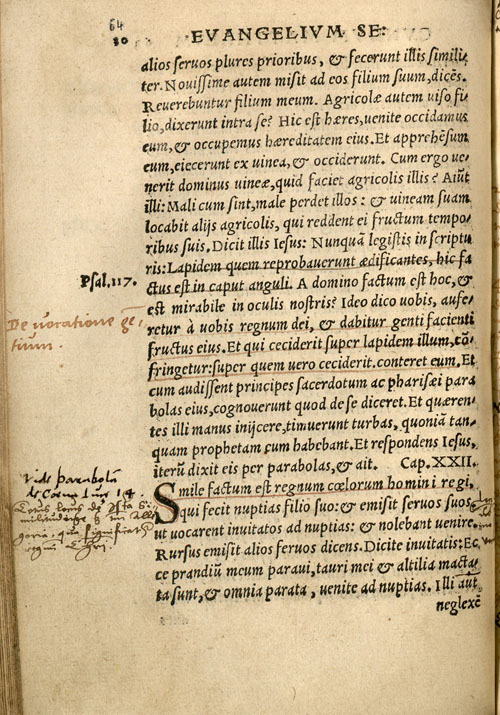 64
80 EVANGELIVM SE:
alios seruos plures prioribus, & fecerunt illis simili
ter. Nouissime autem misit ad eos filium suum, dicẽs.
Reuerebuntur filium meum. Agricolæ autem uiso fi
lio, dixerunt intra se? Hic est hæres, uenite occidamus
eum, & occupemus hæreditatem eius. Et apprehẽsum
eum, eiecerunt ex uinea, & occiderunt. Cum ergo ue
nerit dominus uineæ, quid faciet agricolis illis? Aiũt
illi: Mali cum sint, male perdet illos: & uineam suam
locabit alijs agricolis, qui reddent ei fructum tempo
ribus suis. Dicit illis Iesus: Nunquã legistis in scriptu
ris: Lapidem quem reprobauerunt ædificantes, hic fa
Psal. 117.
ctus est in caput anguli. A domino factum est hoc, &
est mirabile in oculis nostris? Ideo dico uobis, aufe
De vocatione gẽ
tium.
retur à uobis regnum dei, & dabitur genti facienti
fructus eius. Et qui ceciderit super lapidem illum, cõ
fringetur: super quem uero ceciderit. conteret eum. Et
cum audissent principes sacerdotum ac pharisæi para
bolas eius, cognouerunt quod de se diceret. Et quæren
tes illi manus inijcere, timuerunt turbas, quoniã tan
quam prophetam eum habebant. Et respondens Iesus,
iterũ dixit eis per parabolas, & ait. Cap. XXII.
Vide parabolã
de Coena Luc 14.
Simile factum est regnum cœlorum homini regi,
qui fecit nuptias filio suo: & emisit seruos suos
ut uocarent inuitatos ad nuptias: & nolebant uenire.
Rursus emisit alios seruos dicens. Dicite inuitatis: Ec
ce prandiũ meum paraui, tauri mei & altilia macta
ta sunt, & omnia parata, uenite ad nuptias. Illi aut
neglexẽ